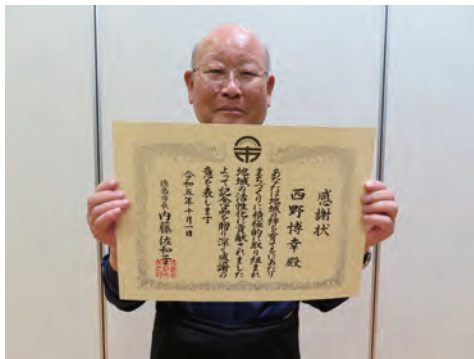 感謝状
西野博幸殿
あなたは地域の絆を育てるにあたり
まちづくりに積極的に取り組まれ
地域の活性化に貢献されました
よって記念品を贈り深く感謝の
意を表します
令和五年十月一日
徳島市長 内藤佐和子